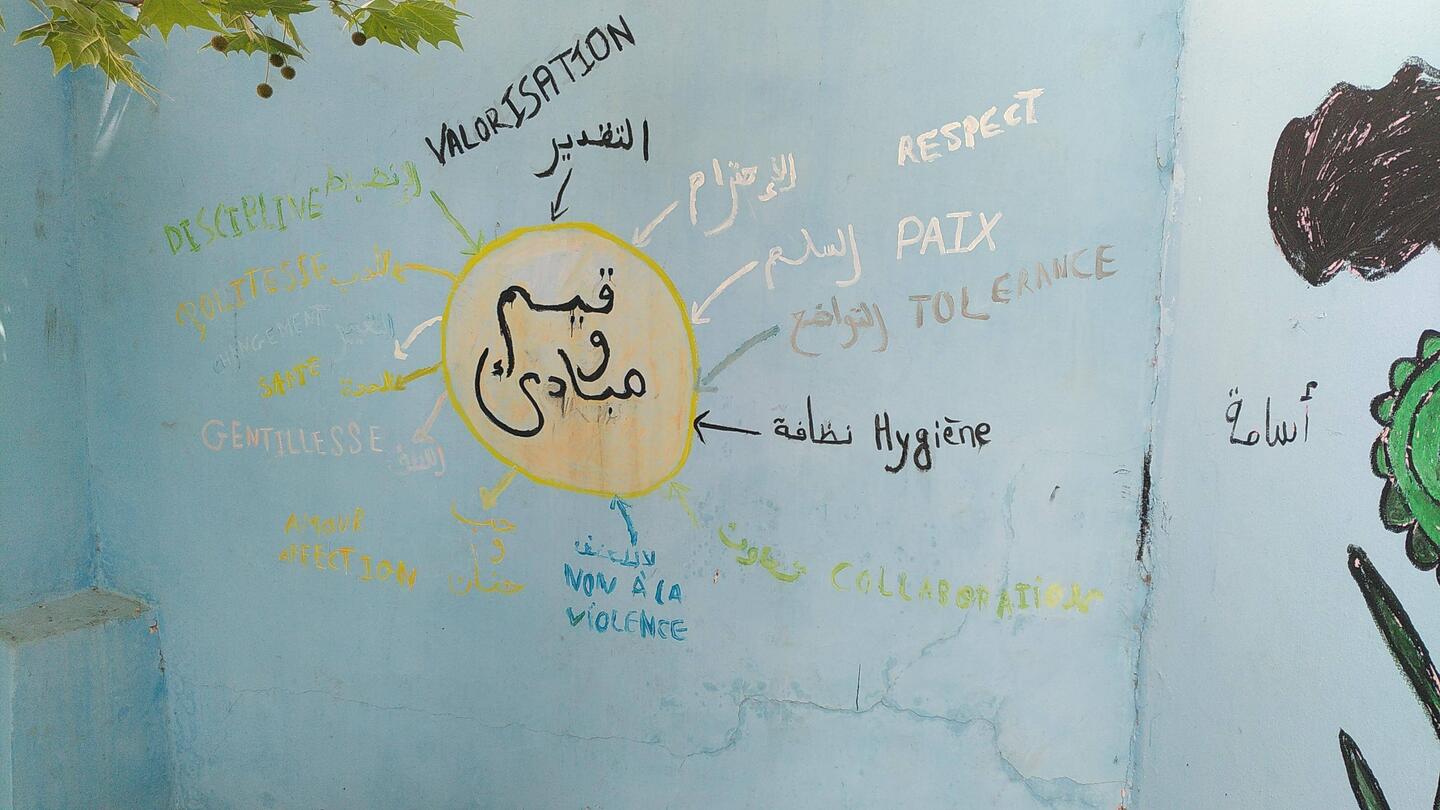 VALORISATION
التقدير
RESPECT
الإحترام
DISCIPLINE الإنضباط
السلم PAIX
POLITESSE الأدب
التواضع TOLERANCE
قيم
و
مبادئ
CHANGEMENT التغيير
SANTE الصحة
نظافة Hygiène
أسامة
GENTILLESSE
AMOUR
AFFECTION
حب
و
حنان
لا للعنف
NON À LA
VIOLENCE
تعاون COLLABORATION